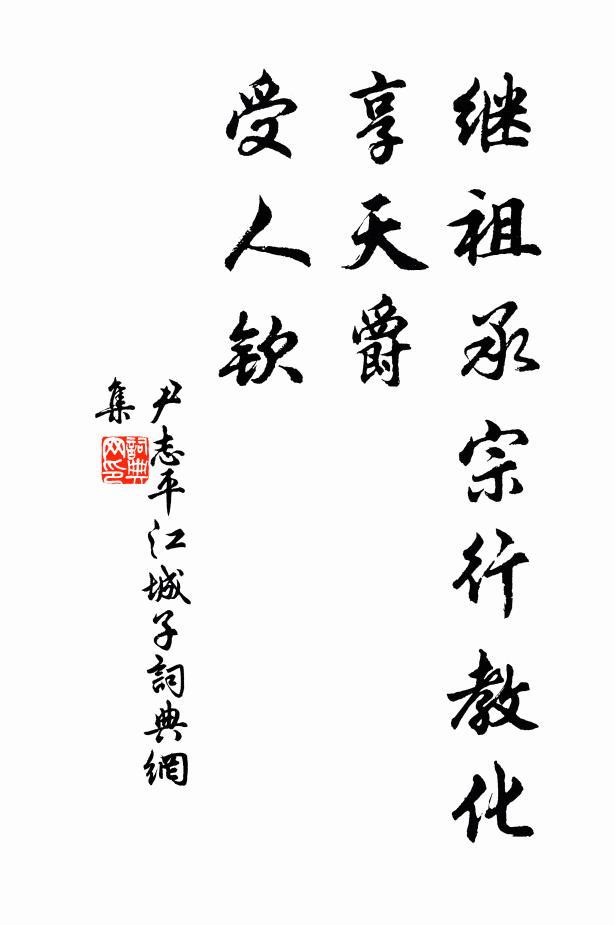 继祖承宗行教化
享天爵
受人钦
尹志平江城子詞典網
集
詞典
网印